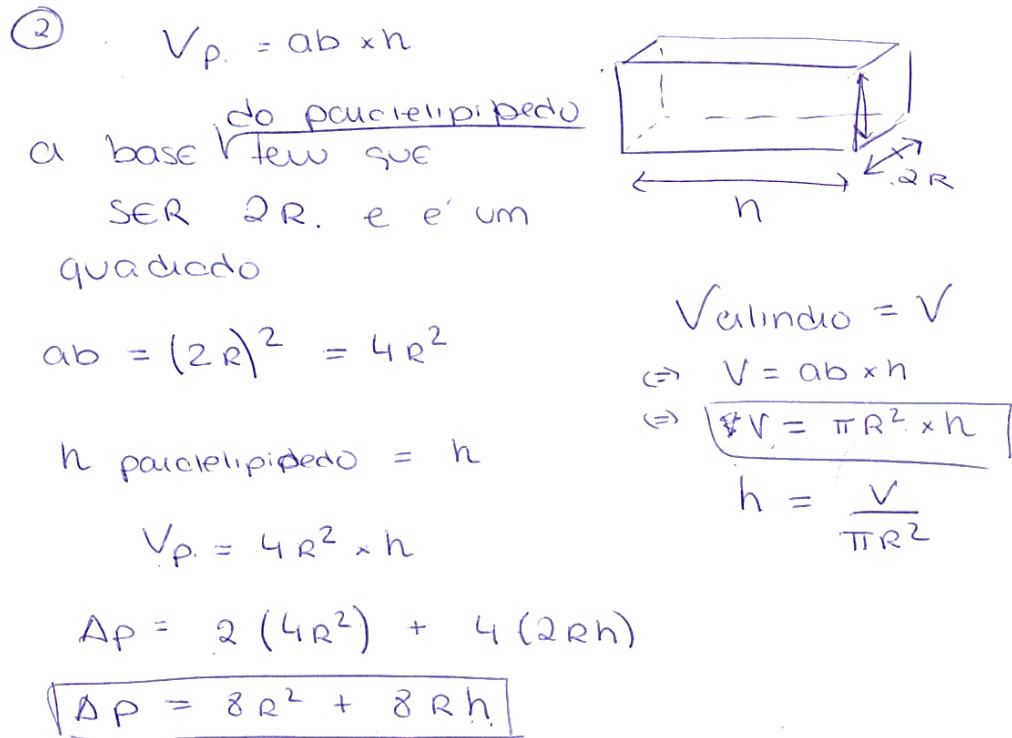 2
Vp. = ab × h
do paralelipipedo
a base tem que
SER 2R. e é um
quadrado
ab = (2R)² = 4R²
h paralelipipedo = h
Vp. = 4R² × h
Ap = 2 (4R²) + 4 (2Rh)
Ap = 8R² + 8Rh
h
2R
Vcilindro = V
⇔ V = ab × h
⇔ V = πR² × h
h = V / πR²